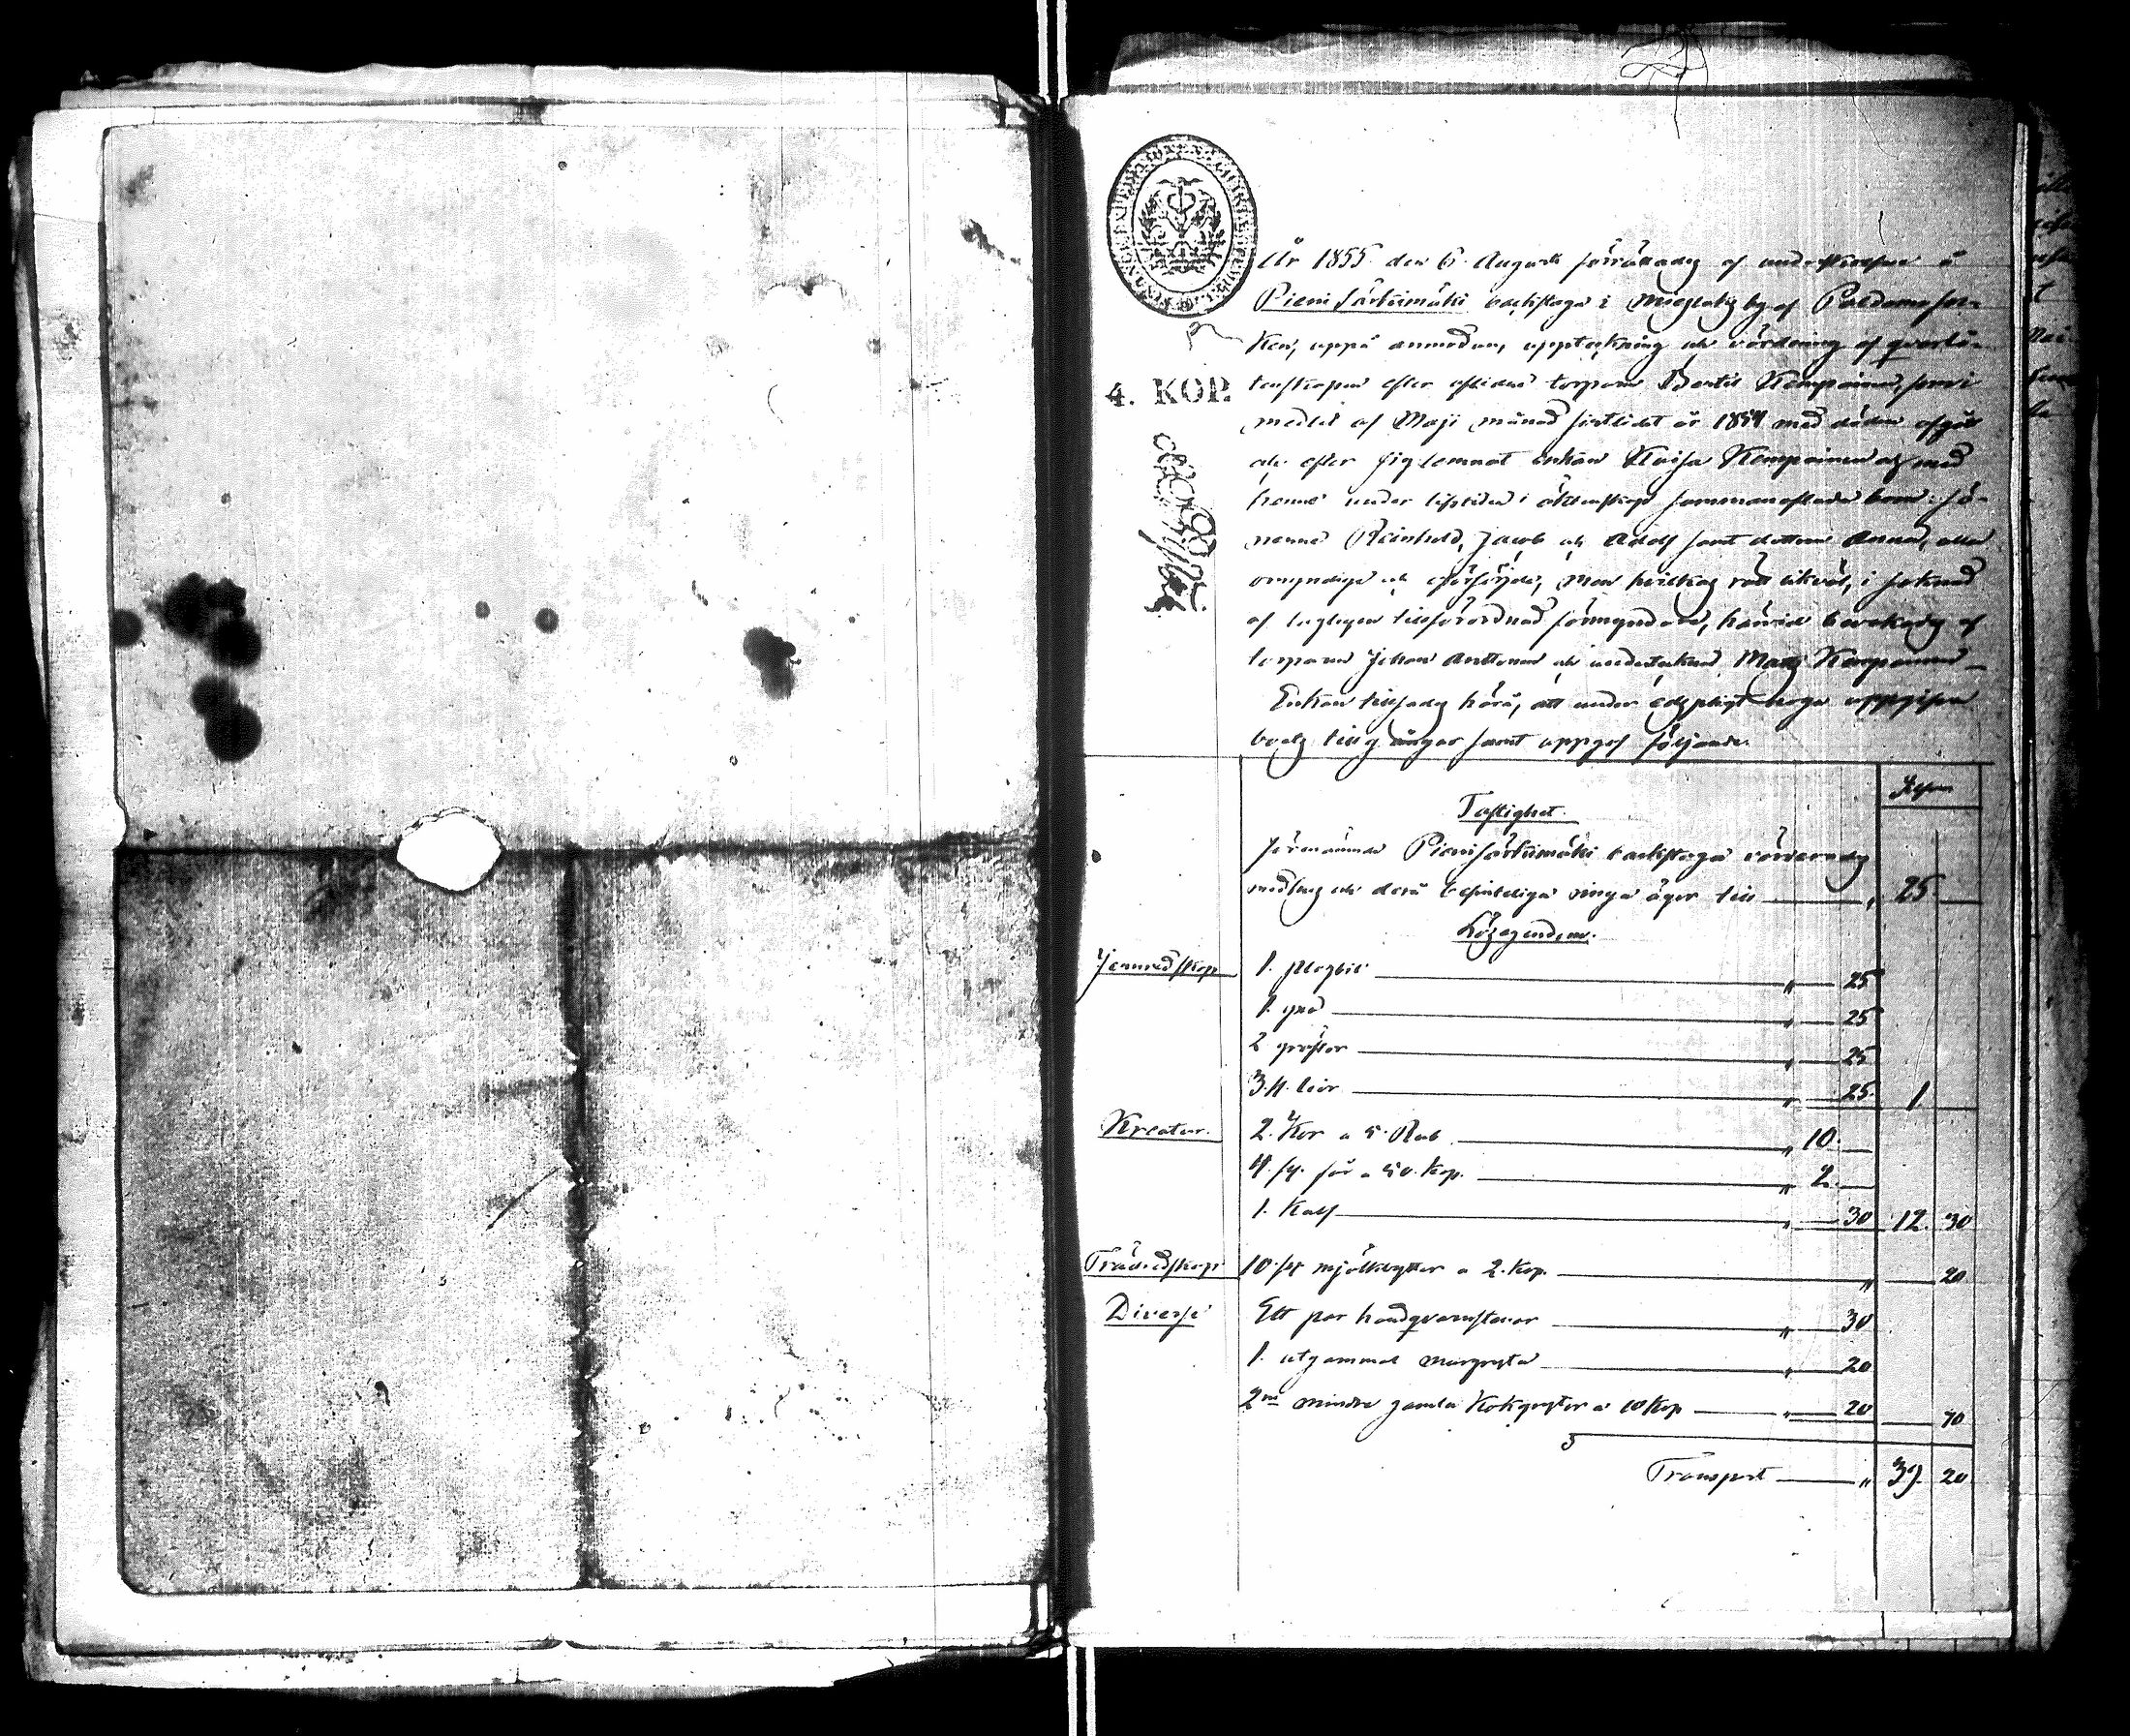 År 1855 den 6 Augusti förrättades af undertecknad å
Pieni Särkiimäki backstuga i Mieslaks by af Paldamo soc-
ken, uppå anmodan, uppteckning och värdering af qvarlå-
4. KOP. tenskapen efter aflidne torparen Bertil Kemppainen, som i
medlet af Maji månad sistlidet år 1854 med döden afgått
och efter sig lemnat enkan Kaisa Kemppainen och med
henne under lifstiden i äktenskap sammanaflade barn: Sö-
nerne Reinhold, Jacob och Adolf samt dottern Anna, alla
omyndige och oförsörjde, men hvilkas rätt likväl, i saknad
af lagligen tillförordnad förmyndare, härvid bevakades af
torparen Johan Anttonen och undertecknad Mats Kemppainen
Enkan tillsades härå, att under edspligt noga uppgifva
boets tillgångar samt uppgaf följande
Silfver
Fastighet.
Förenämnde Pieni Särkiimäki backstuga värderades
med hus och derå befinteliga ringa ägor till " 25
Lösegendom.
Jernredskap 1. plogbill " 25
1. " 25
2 " 25
3. st. liar " 25. 1
Kreatur. 2. Kor a 5. Rub " 10.
4. st. får a 50. Kop. " 2
1. Kalf " 30 12. 30
Träredskap 10. st mjölkbyttor a 2. Kop. " 20
Diverse Ett par handqvarnstenar " 30
1. utgammal murgryta " 20
2ne mindre gamla Kokgrytor a 10 Kop " 20 70
Transport " 39 20